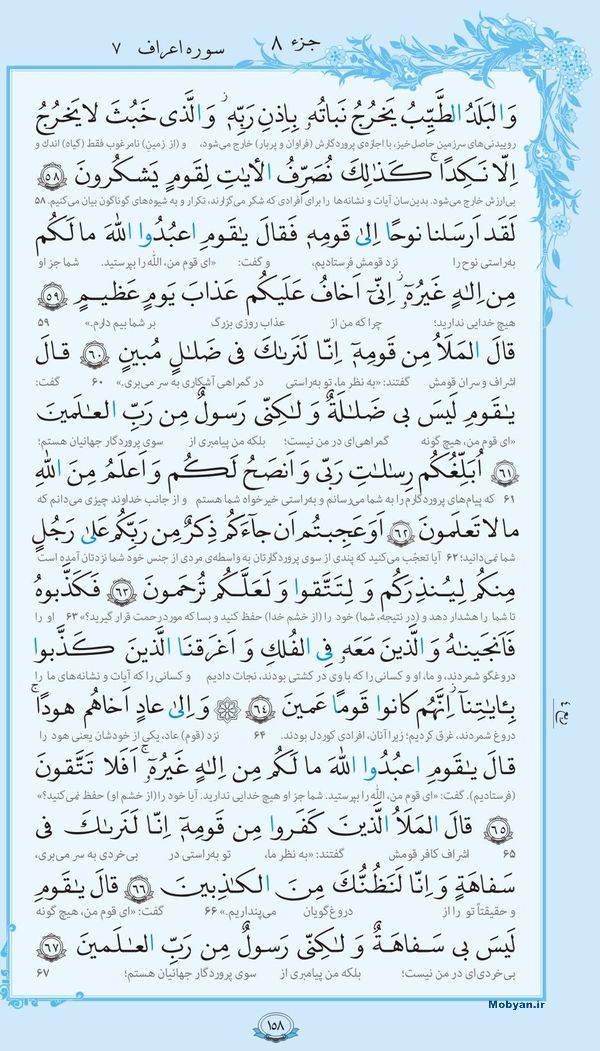 جزء ۸ سوره اعراف ۷
وَالبَلَدُ الطَّيِّبُ يَخرُجُ نَباتُهُ بِاِذنِ رَبِّهِ وَالَّذى خَبُثَ لا يَخرُجُ
روییدنی‌های سرزمین حاصل‌خیز، با اجازه‌ی پروردگارش (فراوان و پربار) خارج می‌شود، و (از زمین) نامرغوب فقط (گیاه) اندک و
اِلّا نَكِدًا كَذٰلِكَ نُصَرِّفُ الأياتِ لِقَومٍ يَشكُرونَ ﴿۵۸﴾
بی‌ارزش خارج می‌شود. بدین‌سان آیات و نشانه‌ها را برای افرادی که شکر می‌گزارند، تکرار و به شیوه‌های گوناگون بیان می‌کنیم. ۵۸
لَقَد اَرسَلنا نوحًا اِلىٰ قَومِهِ فَقالَ يٰقَومِ اعبُدُوا اللّٰهَ ما لَكُم
به‌راستی نوح را نزد قومش فرستادیم، و گفت: «ای قوم من، الله را بپرستید. شما جز او
مِن اِلٰهٍ غَيرُهُ اِنّى اَخافُ عَلَيكُم عَذابَ يَومٍ عَظيمٍ ﴿۵۹﴾
هیچ خدایی ندارید؛ چرا که من از عذاب روزی بزرگ بر شما بیم دارم.» ۵۹
قالَ المَلَأُ مِن قَومِهِ اِنّا لَنَرىٰكَ فى ضَلٰلٍ مُبينٍ ﴿۶۰﴾ قالَ
اشراف و سران قومش گفتند: «به نظر ما، تو به‌راستی در گمراهی آشکاری به سر می‌بری.» ۶۰ گفت:
يٰقَومِ لَيسَ بى ضَلٰلَةٌ وَ لٰكِنّى رَسولٌ مِن رَبِّ العٰلَمينَ
«ای قوم من، هیچ گونه گمراهی‌ای در من نیست؛ بلکه من پیامبری از سوی پروردگار جهانیان هستم؛
﴿۶۱﴾ اُبَلِّغُكُم رِسٰلٰتِ رَبّى وَ اَنصَحُ لَكُم وَ اَعلَمُ مِنَ اللّٰهِ
۶۱ که پیام‌های پروردگارم را به شما می‌رسانم و به‌راستی خیرخواه شما هستم و از جانب خداوند چیزی می‌دانم که
ما لا تَعلَمونَ ﴿۶۲﴾ اَوَعَجِبتُم اَن جآءَكُم ذِكرٌ مِن رَبِّكُم عَلىٰ رَجُلٍ
شما نمی‌دانید؛ ۶۲ آیا تعجّب می‌کنید که پندی از سوی پروردگارتان به واسطه‌ی مردی از جنس خود شما نزدتان آمده است
مِنكُم لِيُنذِرَكُم وَ لِتَتَّقوا وَ لَعَلَّكُم تُرحَمونَ ﴿۶۳﴾ فَكَذَّبوهُ
تا شما را هشدار دهد و (در نتیجه، شما) خود را (از خشم خدا) حفظ کنید و بسا که مورد رحمت قرار گیرید؟» ۶۳ او را
فَاَنجَينٰهُ وَ الَّذينَ مَعَهُ فِى الفُلكِ وَ اَغرَقنَا الَّذينَ كَذَّبوا
دروغگو شمردند، و ما، او و کسانی را که با وی در کشتی بودند، نجات دادیم و کسانی را که آیات و نشانه‌های ما را
بِـٔايٰتِنا اِنَّهُم كانوا قَومًا عَمينَ ﴿۶۴﴾ وَ اِلىٰ عادٍ اَخاهُم هودًا
دروغ شمردند، غرق کردیم؛ زیرا آنان، افرادی کوردل بودند. ۶۴ نزد (قوم) عاد، یکی از خودشان یعنی هود را
قالَ يٰقَومِ اعبُدُوا اللّٰهَ ما لَكُم مِن اِلٰهٍ غَيرُهُ اَفَلا تَتَّقونَ
(فرستادیم). گفت: «ای قوم من، الله را بپرستید. شما جز او هیچ خدایی ندارید. آیا خود را (از خشم او) حفظ نمی‌کنید؟»
﴿۶۵﴾ قالَ المَلَأُ الَّذينَ كَفَروا مِن قَومِهِ اِنّا لَنَرىٰكَ فى
۶۵ اشراف کافر قومش گفتند: «به نظر ما، تو به‌راستی در بی‌خردی به سر می‌بری،
سَفاهَةٍ وَ اِنّا لَنَظُنُّكَ مِنَ الكٰذِبينَ ﴿۶۶﴾ قالَ يٰقَومِ
و حقیقتاً تو را از دروغ‌گویان می‌پنداریم.» ۶۶ گفت: «ای قوم من، هیچ گونه
لَيسَ بى سَفاهَةٌ وَ لٰكِنّى رَسولٌ مِن رَبِّ العٰلَمينَ ﴿۶۷﴾
بی‌خردی‌ای در من نیست؛ بلکه من پیامبری از سوی پروردگار جهانیان هستم؛ ۶۷
۱۵۸
Mobyan.ir